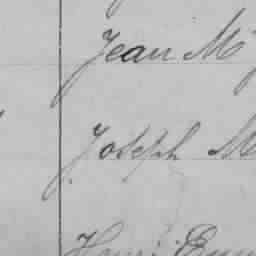 Jean M
Joseph M
Henri